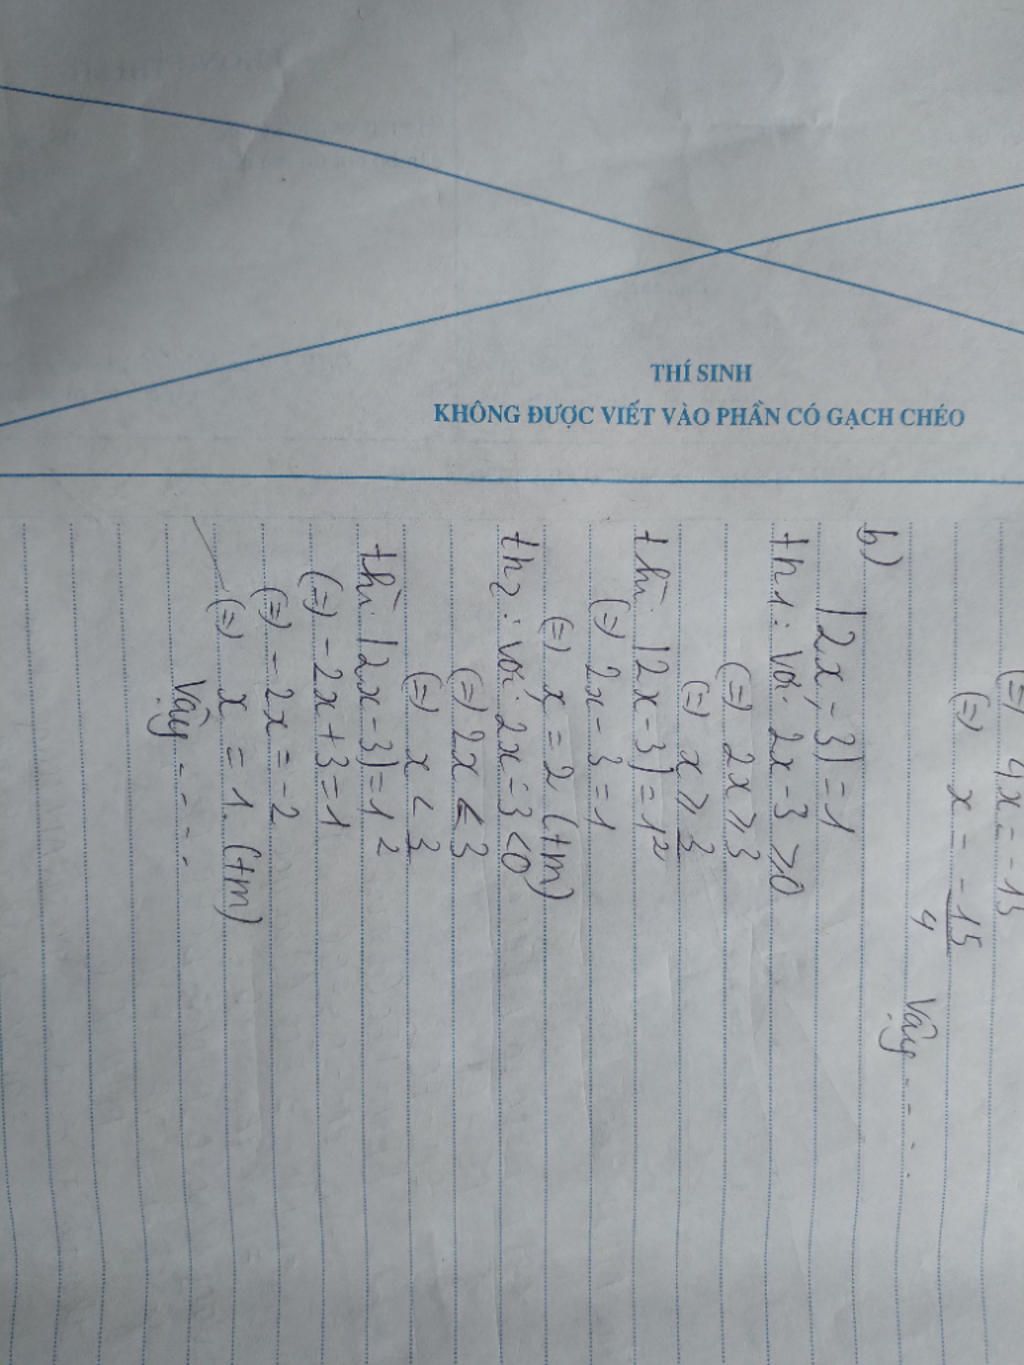 THÍ SINH
KHÔNG ĐƯỢC VIẾT VÀO PHẦN CÓ GẠCH CHÉO
(=) 4x = -15
(=) x = -15/4 Vậy - - - .
b) |2x - 3| = 1
th1: Với 2x - 3 ⩾ 0
(=) 2x ⩾ 3
(=) x ⩾ 3/2
thì |2x - 3| = 1
(=) 2x - 3 = 1
(=) x = 2 (tm)
th2: với 2x - 3 < 0
(=) 2x < 3
(=) x < 3/2
thì |2x - 3| = 1
(=) -2x + 3 = 1
(=) -2x = -2
(=) x = 1. (tm)
Vậy - - - .